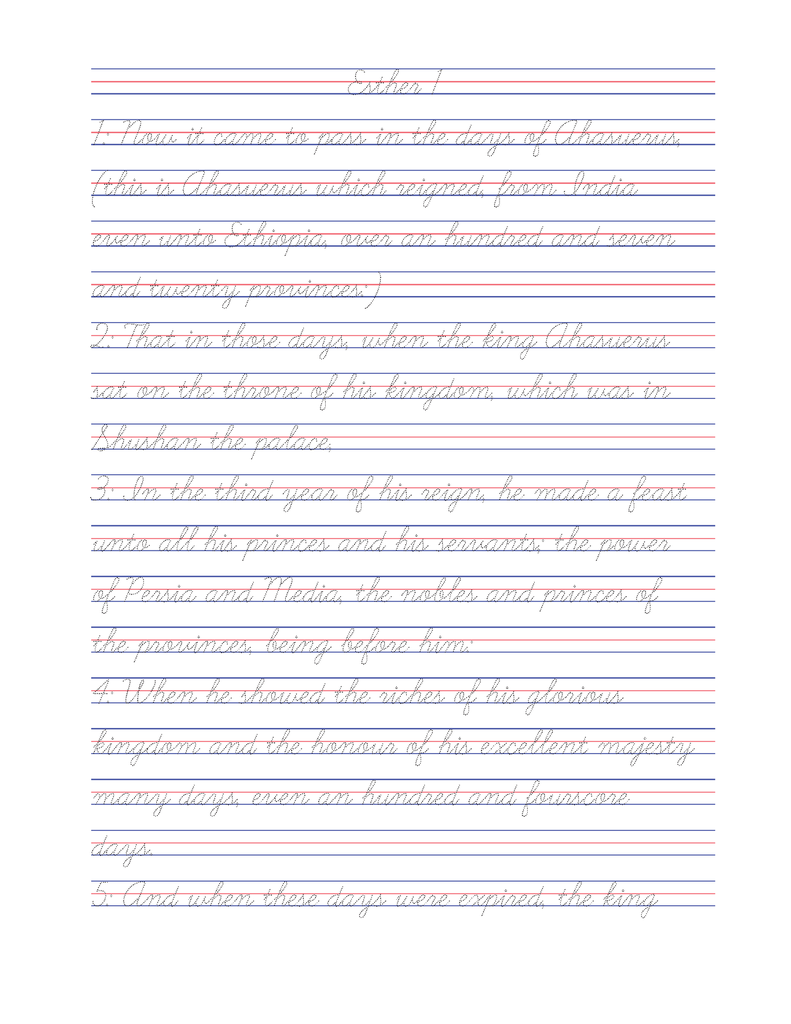 Esther 1
1: Now it came to pass in the days of Ahasuerus,
(this is Ahasuerus which reigned, from India
even unto Ethiopia, over an hundred and seven
and twenty provinces:)
2: That in those days, when the king Ahasuerus
sat on the throne of his kingdom, which was in
Shushan the palace,
3: In the third year of his reign, he made a feast
unto all his princes and his servants; the power
of Persia and Media, the nobles and princes of
the provinces, being before him:
4: When he showed the riches of his glorious
kingdom and the honour of his excellent majesty
many days, even an hundred and fourscore
days.
5: And when these days were expired, the king